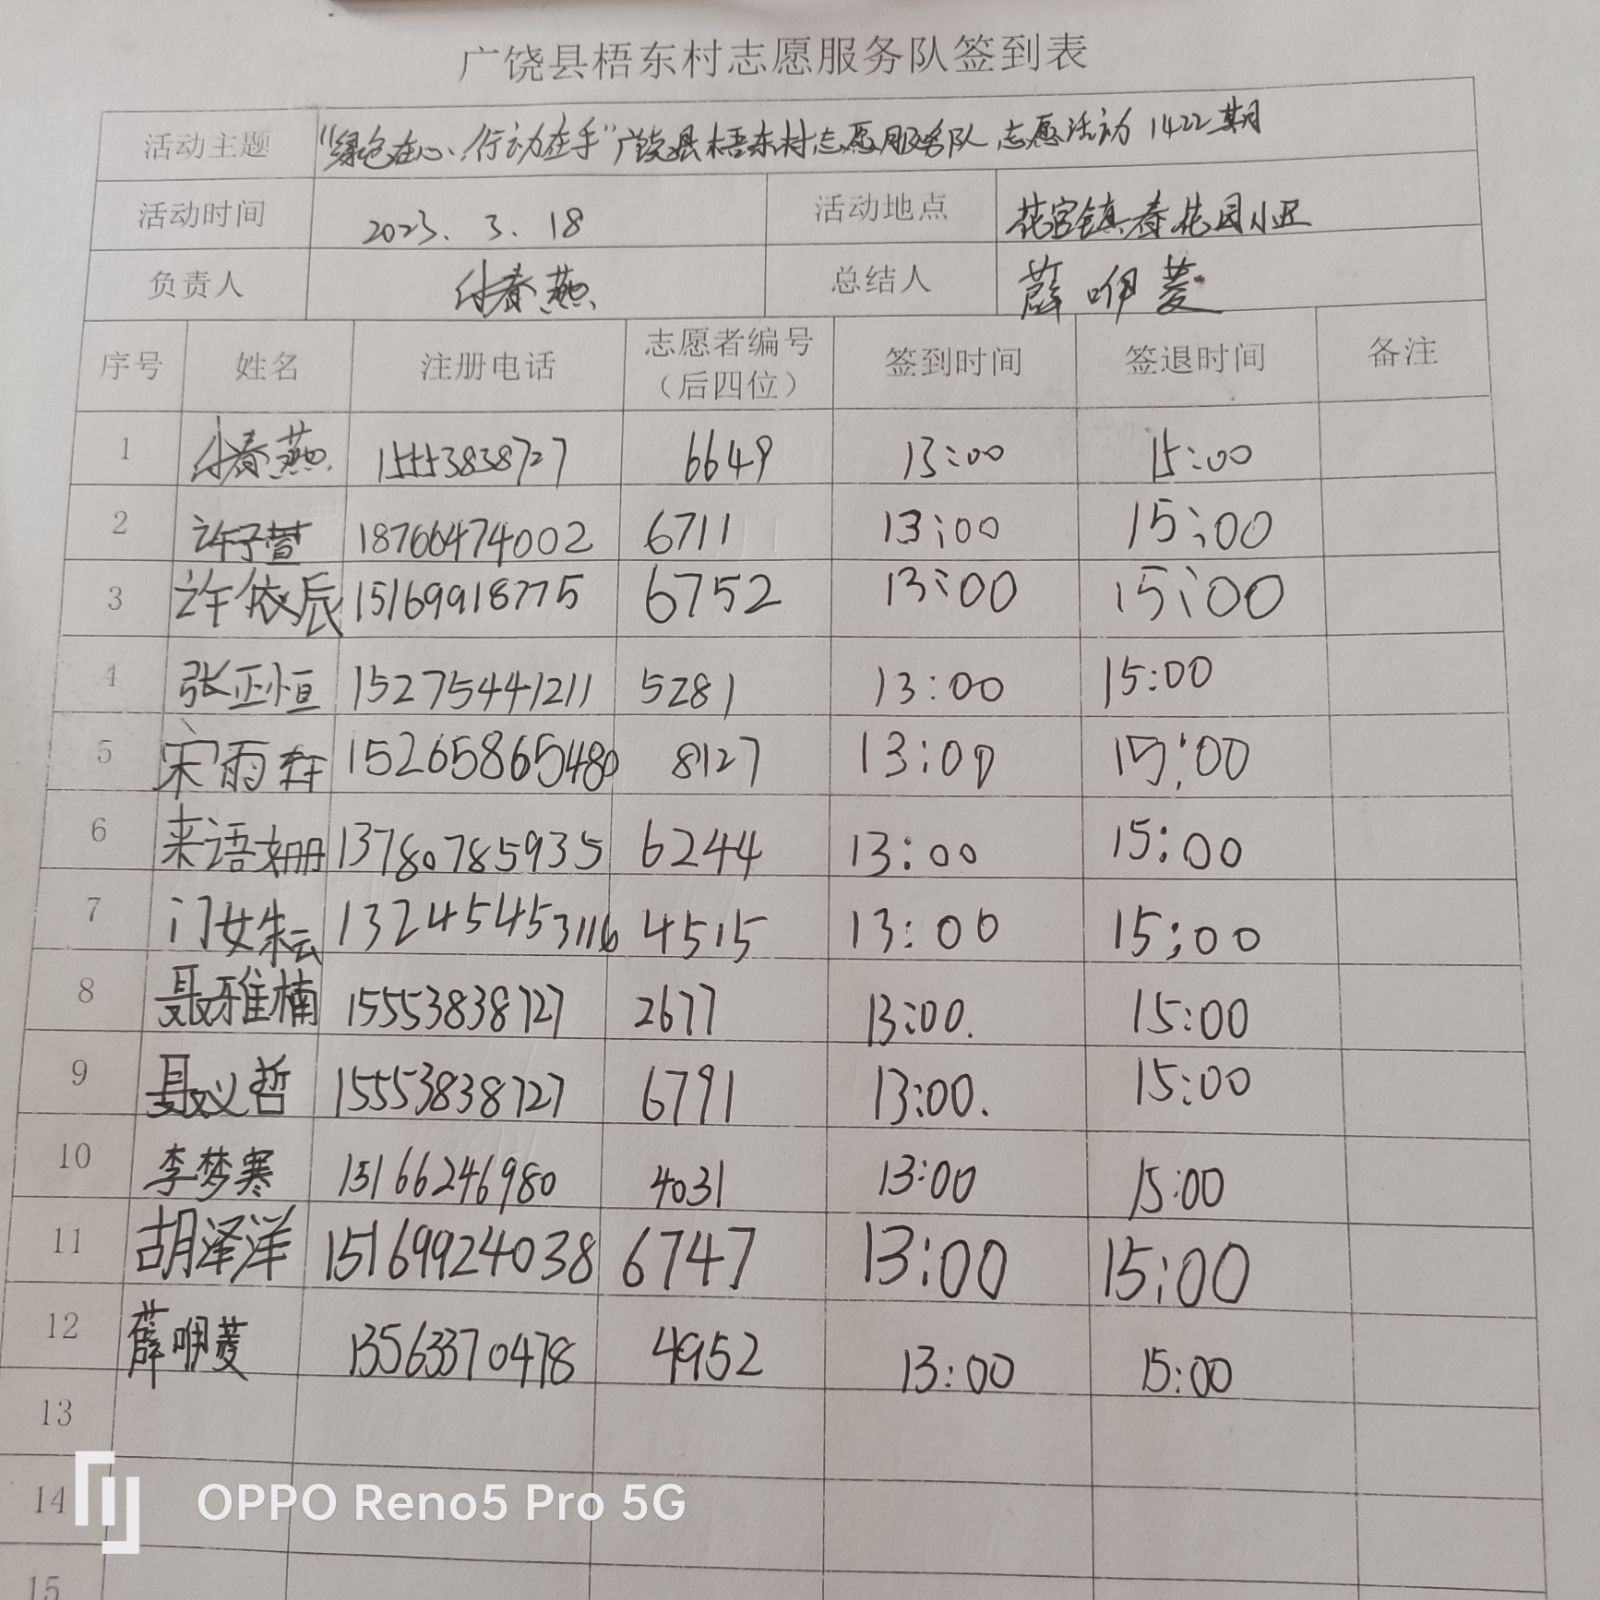 广饶县梧东村志愿服务队签到表
活动主题 “绿色在心、行动在手”广饶县梧东村志愿服务队志愿活动1422期
活动时间 2023.3.18 活动地点 花官镇春花园小区
负责人 付春燕 总结人 薛咿菱
序号 姓名 注册电话 志愿者编号（后四位） 签到时间 签退时间 备注
1 付春燕 15553838727 6649 13:00 15:00
2 许子萱 18766474002 6711 13:00 15:00
3 许依辰 15169918775 6752 13:00 15:00
4 张正恒 15275441211 5281 13:00 15:00
5 宋雨 15265865480 8127 13:00 15:00
6 来语姗 13780785935 6244 13:00 15:00
7 13245453116 4515 13:00 15:00
8 聂雅楠 15553838727 2677 13:00. 15:00
9 聂义哲 15553838727 6791 13:00. 15:00
10 李梦寒 15166246980 4031 13:00 15:00
11 胡泽洋 15169924038 6747 13:00 15:00
12 薛咿菱 13563370478 4952 13:00 15:00
13
14
15
OPPO Reno5 Pro 5G